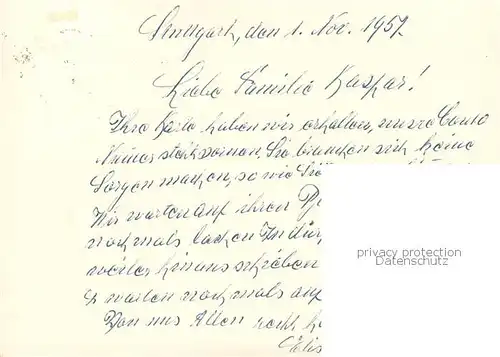 Stuttgart, den 1. Nov. 1957
Liebe Familie Kaspar!
Ihre Karte haben wir erhalten, unsre Conto
Sie brauchen sich keine
Sorgen machen, so wie Sie
Wir warten auf ihren
nochmals
weiter hinaus schieben
warten nochmals auf
Von uns Allen recht
privacy protection
Datenschutz